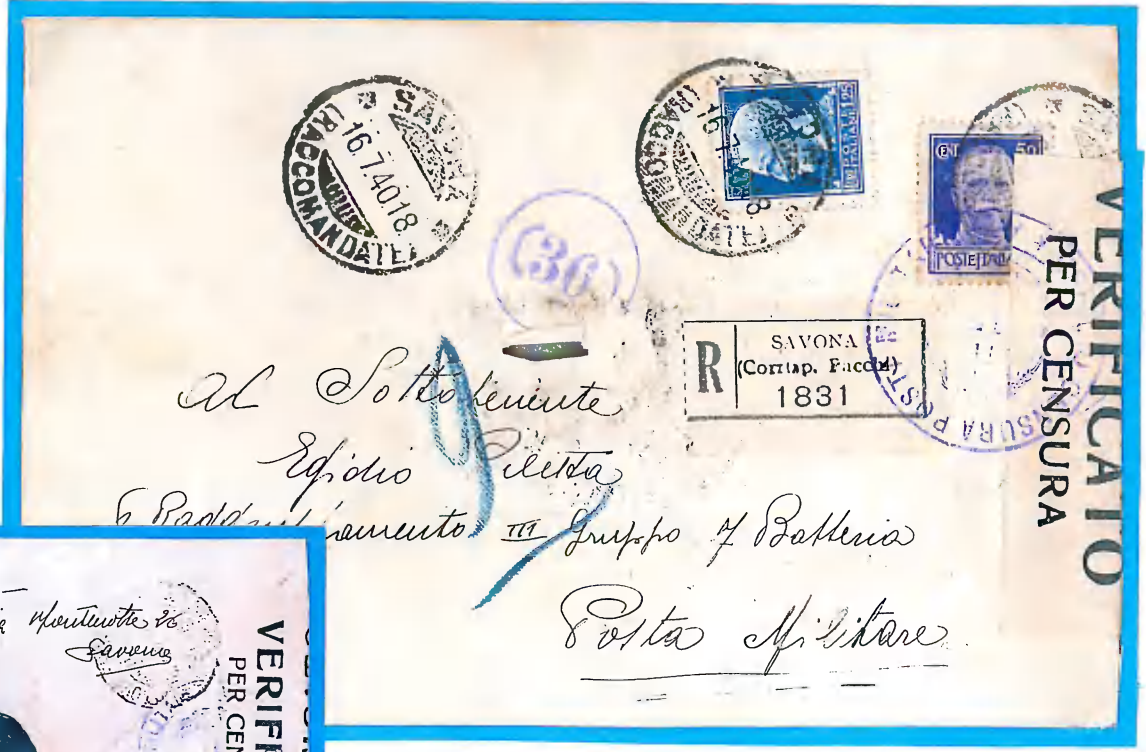 SAVONA
16.7.40 18
(RACCOMANDATE)
16.7.40 18
(RACCOMANDATE)
ITALIANE 1,25
50
POSTE ITALIA
(36)
R
SAVONA
(Corrisp. Pacchi)
1831
CENSURA POST
VERIFICATO
PER CENSURA
9
Al Sottotenente
Egidio
6 Raggruppamento III Gruppo 7 Batteria
Posta Militare
Montenotte 26
Savona
VERIF
PER CEN